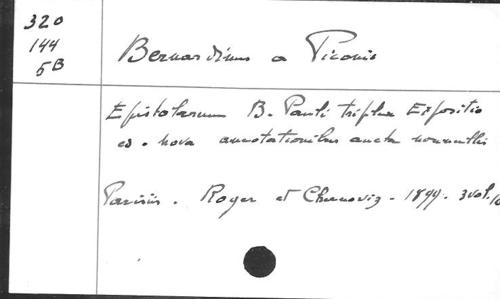 320
144
5B
Bernardinus a Piconio
Epistolarum B. Pauli triplex Expositio
ed. nova annotationibus aucta nonnullis
Parisiis. Roger et Chernoviz - 1899. 3 vol.